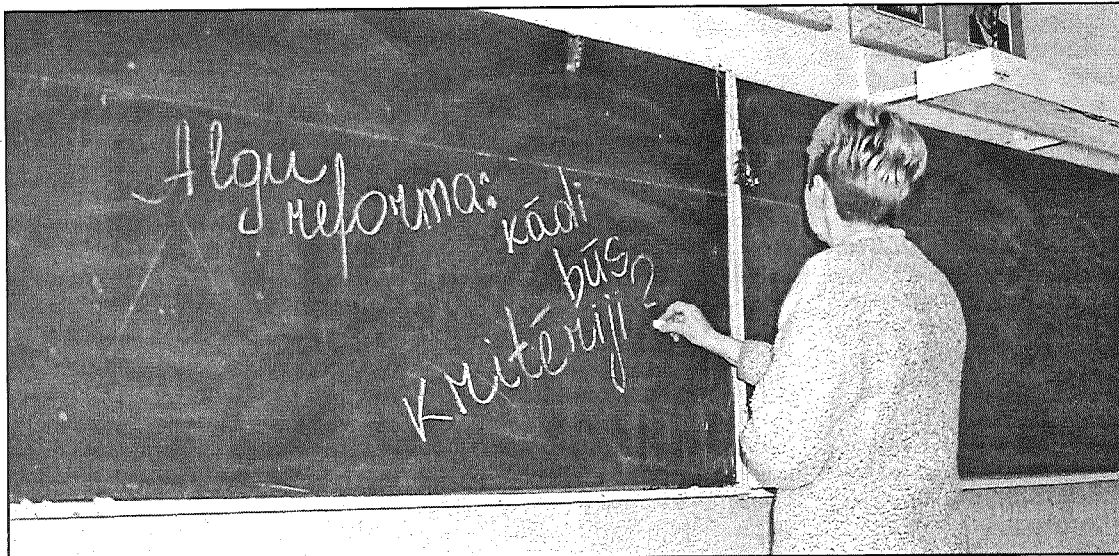 Algu
reforma:
kādi
būs
kritēriji?